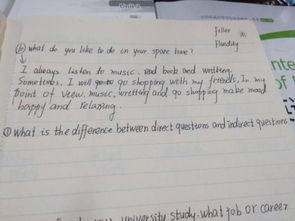 filler
Fluidity
⑥ what do you like to do in your spare time?
I always listen to music, read book and writting.
Sometimes, I will go shopping with my friends, In my
Point of view, music, writting and go shopping make mood
happy and relaxing.
① What is the difference between direct questions and indirect questions
university study, what job or career